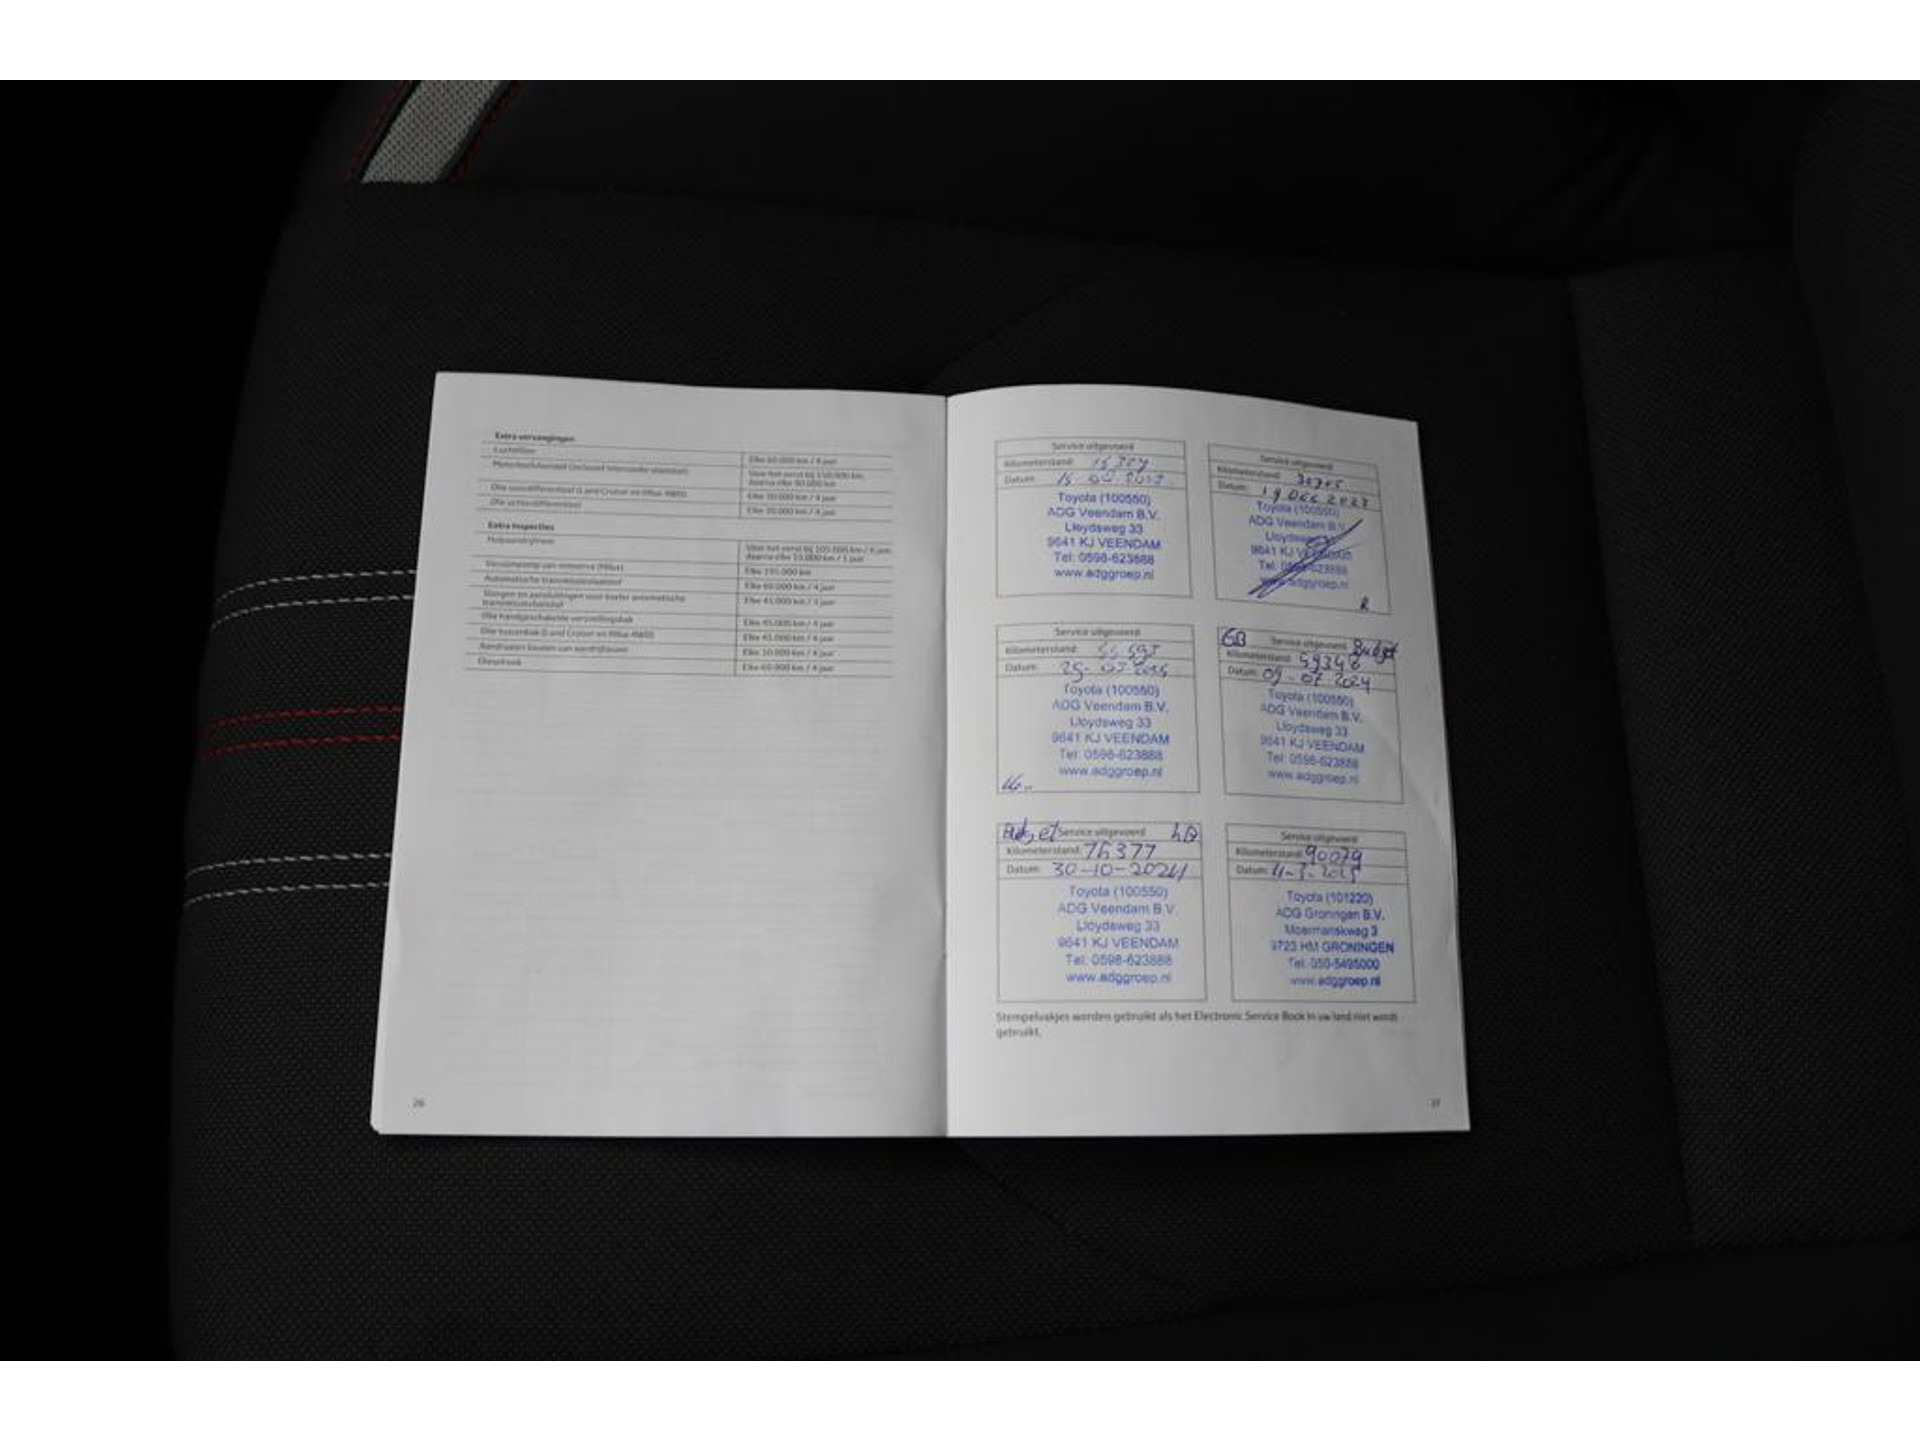 Extra vervangingen
Luchtfilter Elke 60.000 km / 4 jaar
Motorkoelvloeistof (inclusief intercooler vloeistof) Voor het eerst bij 150.000 km,
daarna elke 90.000 km
Olie voordifferentieel (Land Cruiser en Hilux 4WD) Elke 30.000 km / 4 jaar
Olie achterdifferentieel Elke 30.000 km / 4 jaar
Extra inspecties
Hulpaandrijfriem Voor het eerst bij 105.000 km / 6 jaar,
daarna elke 15.000 km / 1 jaar
Elke 195.000 km
Automatische transmissievloeistof Elke 60.000 km / 4 jaar
Slangen en aansluitingen voor koeler automatische
transmissievloeistof Elke 45.000 km / 3 jaar
Olie handgeschakelde versnellingsbak Elke 45.000 km / 4 jaar
Olie tussenbak (Land Cruiser en Hilux 4WD) Elke 45.000 km / 4 jaar
Aandraaien bouten van aandrijfassen Elke 30.000 km / 4 jaar
Elke 60.000 km / 4 jaar
26
Service uitgevoerd
Kilometerstand:
Datum:
Toyota (100550)
ADG Veendam B.V.
Lloydsweg 33
9641 KJ VEENDAM
Tel: 0598-623888
www.adggroep.nl
Service uitgevoerd
Kilometerstand:
Datum: 19 DEC
Toyota (100550)
ADG Veendam B.V.
Lloydsweg
9641 KJ VEENDAM
Tel: 0598-623888
www.adggroep.nl
R
Service uitgevoerd
Kilometerstand:
Datum:
Toyota (100550)
ADG Veendam B.V.
Lloydsweg 33
9641 KJ VEENDAM
Tel: 0598-623888
www.adggroep.nl
GB Service uitgevoerd Budget
Kilometerstand: 59348
Datum: 09-07 2024
Toyota (100550)
ADG Veendam B.V.
Lloydsweg 33
9641 KJ VEENDAM
Tel: 0598-623888
www.adggroep.nl
Budget Service uitgevoerd
Kilometerstand: 75377
Datum: 30-10-2024
Toyota (100550)
ADG Veendam B.V.
Lloydsweg 33
9641 KJ VEENDAM
Tel: 0598-623888
www.adggroep.nl
Service uitgevoerd
Kilometerstand: 90079
Datum:
Toyota (101220)
ADG Groningen B.V.
Moermanskweg 3
9723 HM GRONINGEN
Tel: 050-5495000
www.adggroep.nl
Stempelvakjes worden gebruikt als het Electronic Service Book in uw land niet wordt
gebruikt.
27